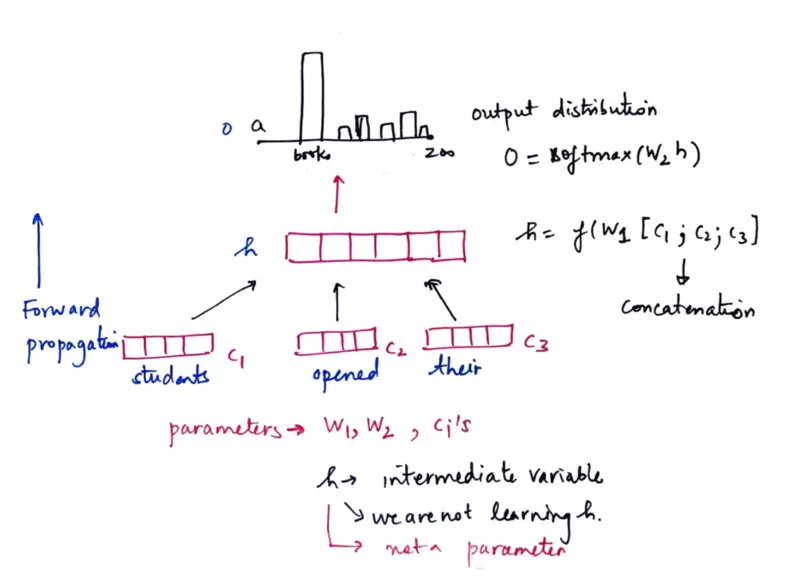 o a
books
zoo
output distribution
O = softmax(W₂ h)
h
h = f(W1 [C₁ ; C₂; C₃]
↓
concatenation
Forward
propagation
C₁
C₂
C₃
students
opened
their
parameters → W₁, W₂ , Ci's
h → intermediate variable
↘ we are not learning h.
↳ not a parameter